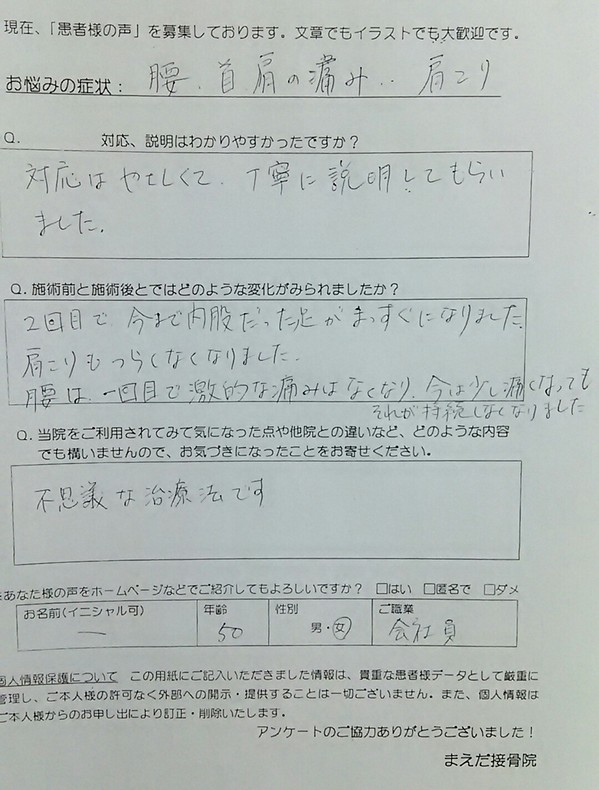 現在、「患者様の声」を募集しております。文章でもイラストでも大歓迎です。
お悩みの症状： 腰、首、肩の痛み、肩こり
Q. 対応、説明はわかりやすかったですか？
対応はやさしくて、丁寧に説明してもらい
ました。
Q. 施術前と施術後とではどのような変化がみられましたか？
2回目で、今まで内股だった足がまっすぐになりました。
肩こりもつらくなくなりました。
腰は、一回目で激的な痛みはなくなり、今は少し痛くなっても
それが持続しなくなりました
Q. 当院をご利用されてみて気になった点や他院との違いなど、どのような内容
でも構いませんので、お気づきになったことをお寄せください。
不思議な治療法です
あなた様の声をホームページなどでご紹介してもよろしいですか？ □はい □匿名で □ダメ
お名前(イニシャル可) 年齢 性別 ご職業
― 50 男・女 会社員
個人情報保護について この用紙にご記入いただきました情報は、貴重な患者様データとして厳重に
管理し、ご本人様の許可なく外部への開示・提供することは一切ございません。また、個人情報は
ご本人様からのお申し出により訂正・削除いたします。
アンケートのご協力ありがとうございました！
まえだ接骨院